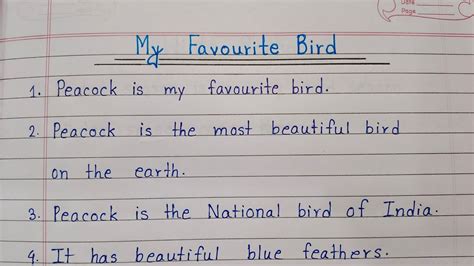 Date
Page
My Favourite Bird
1. Peacock is my favourite bird.
2. Peacock is the most beautiful bird
on the earth.
3. Peacock is the National bird of India.
4. It has beautiful blue feathers.